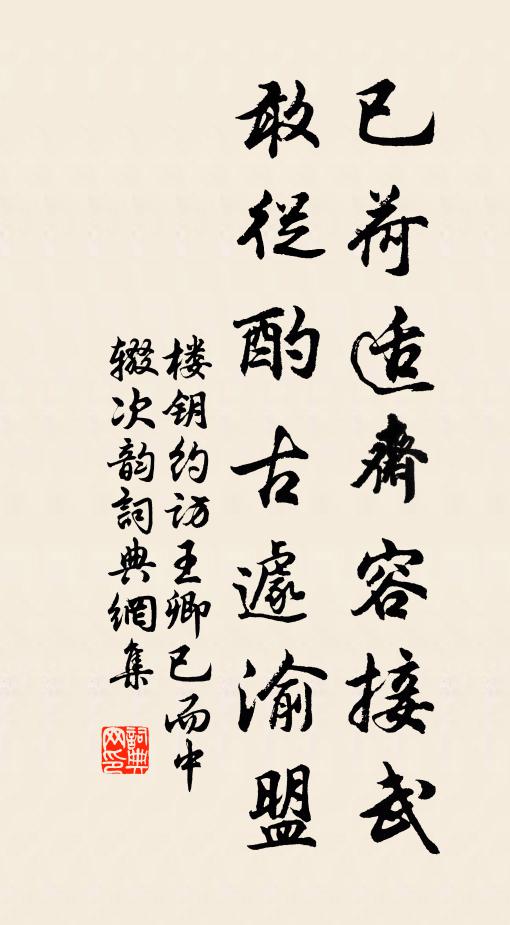 已荷适齋容接武
敢從酌古遽渝盟
楼钥约访王卿已而中
辍次韵詞典網集
詞典
网印